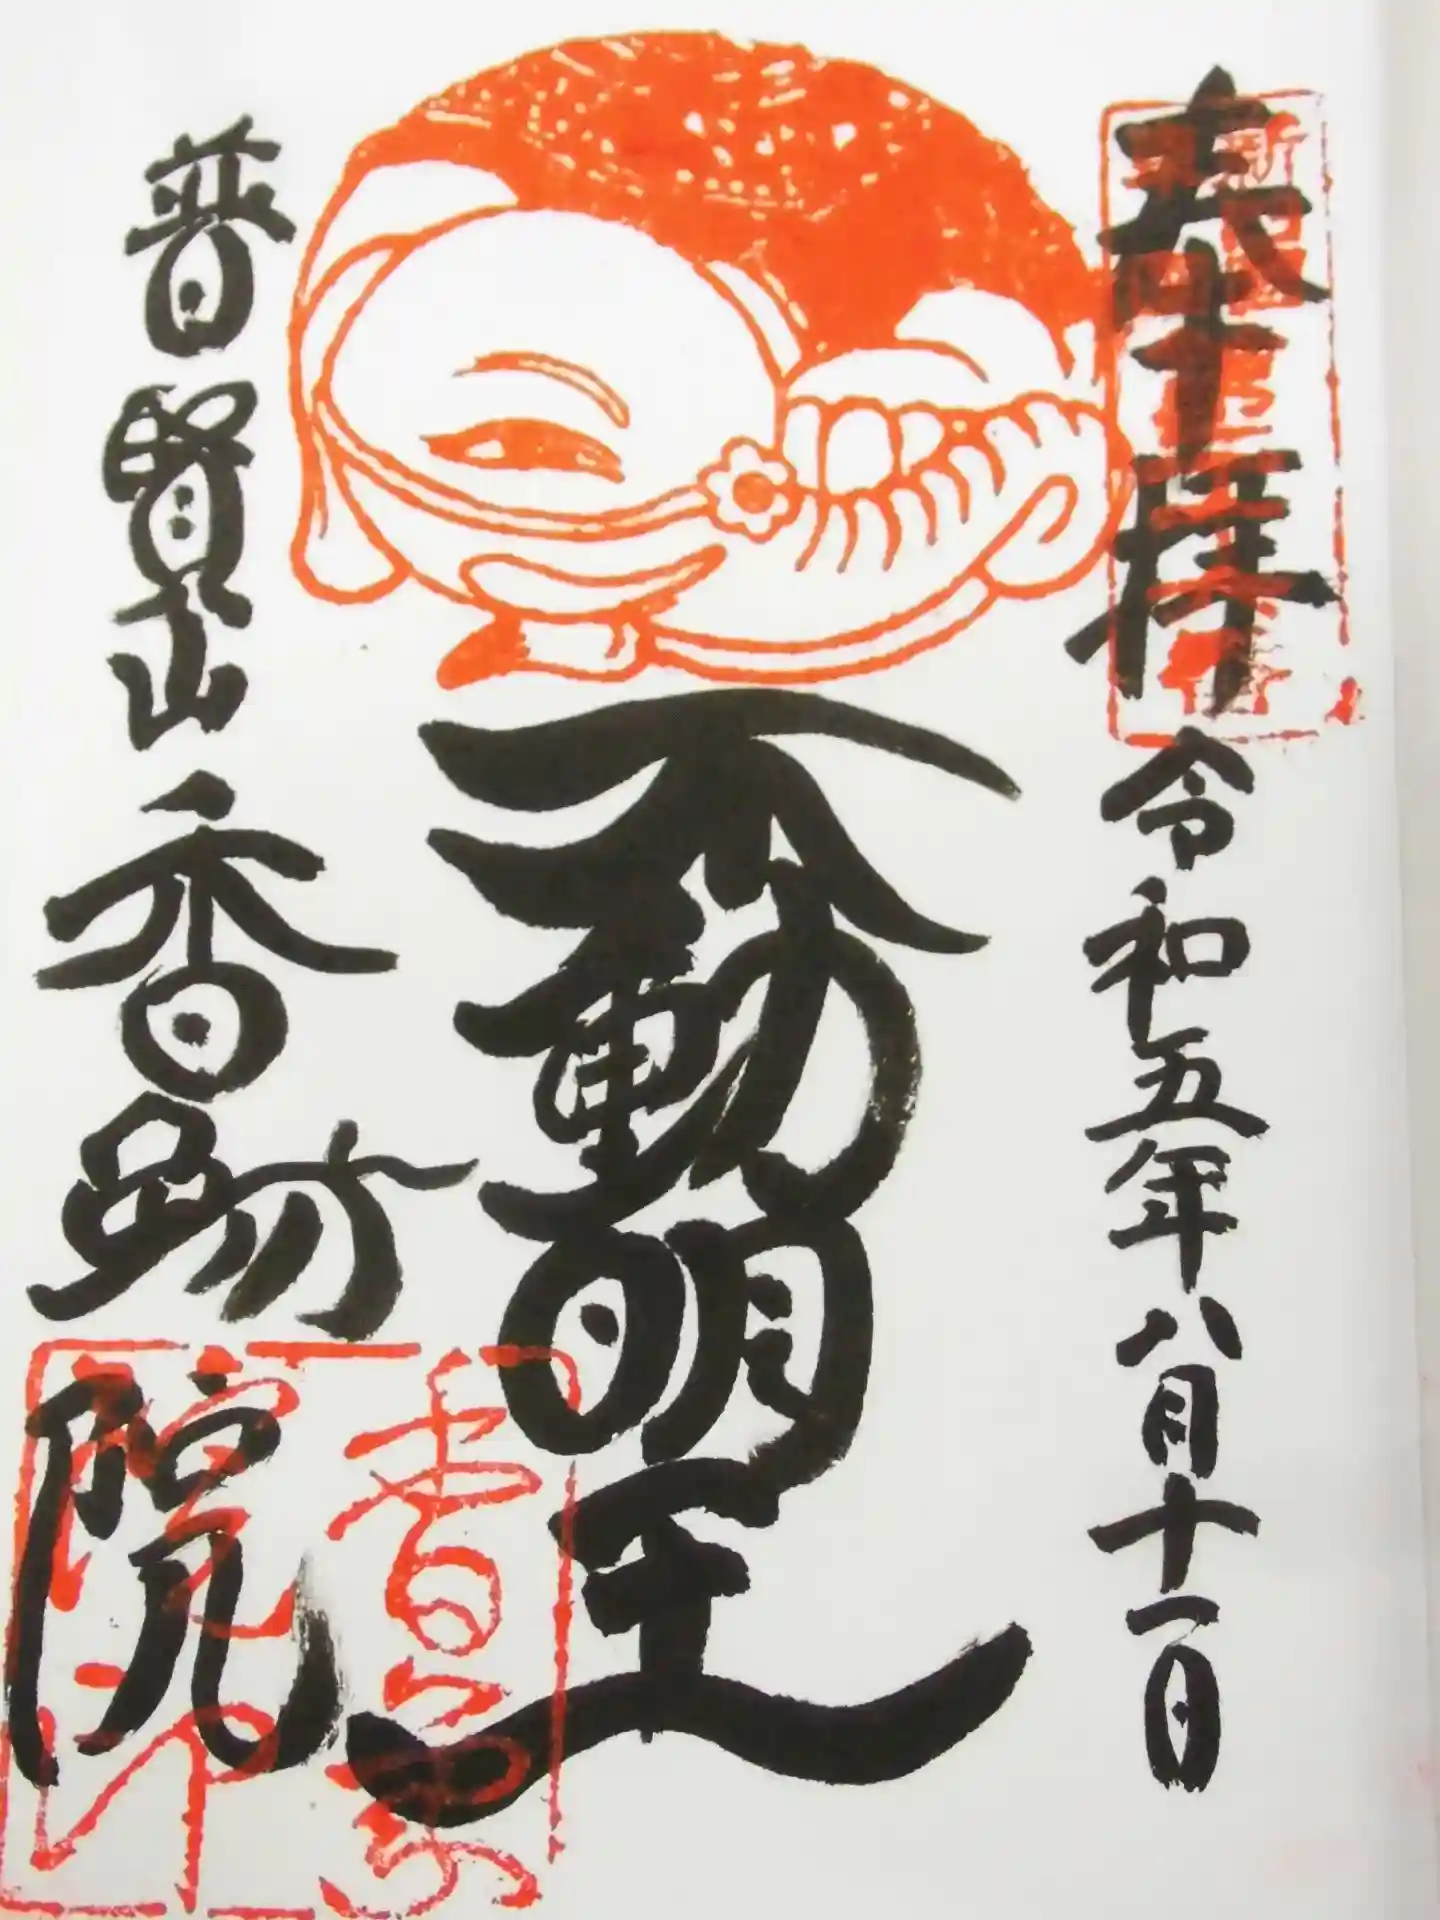 奉拝
令和五年八月十一日
不動明王
普賢山
香跡院